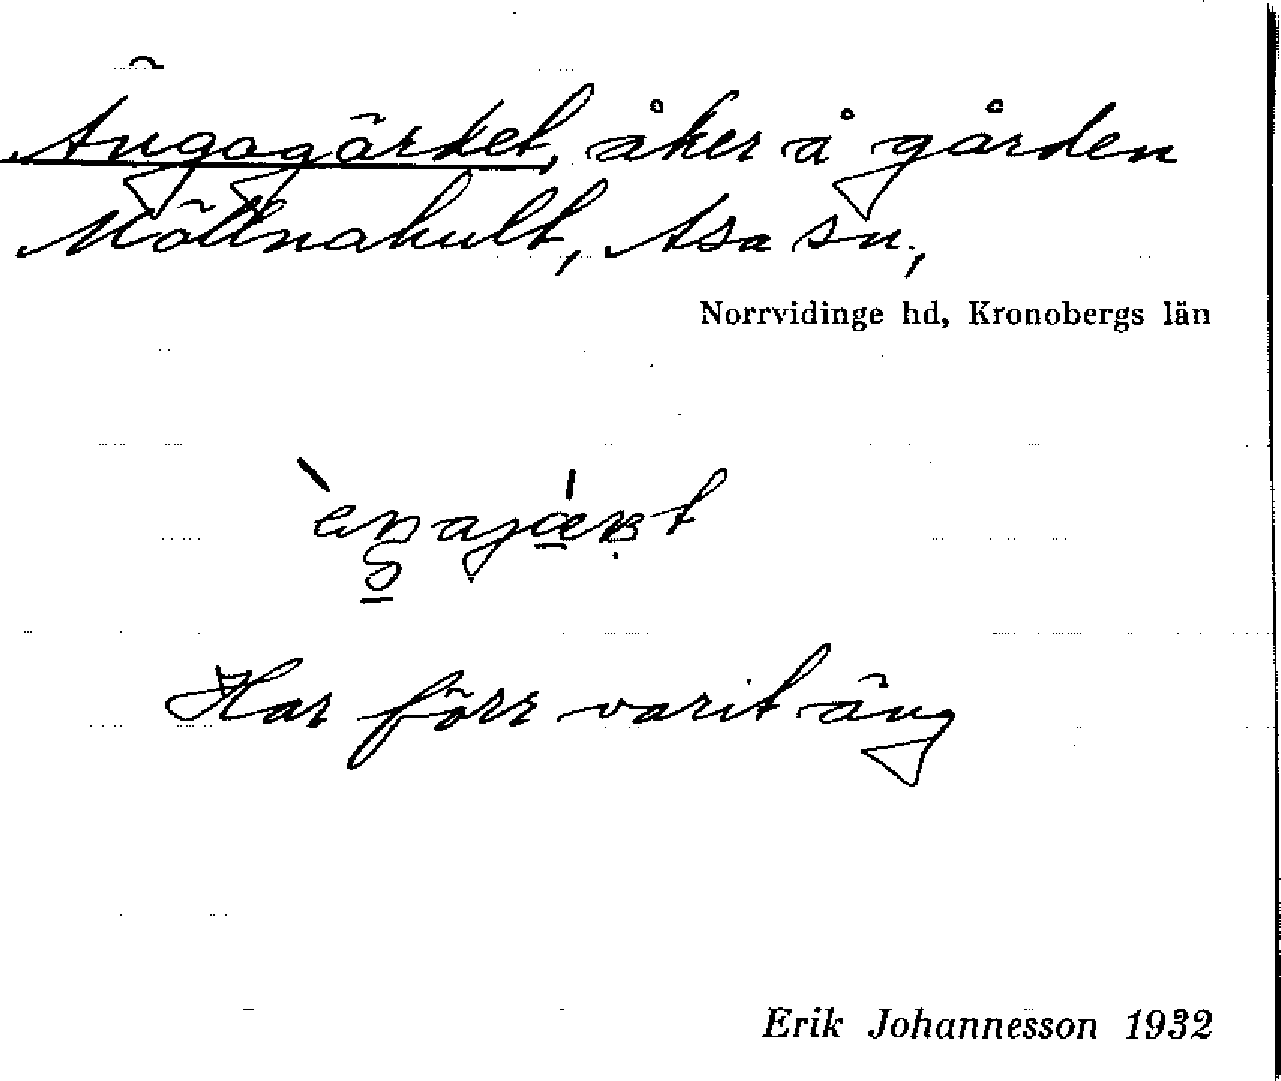 Ängagärdet, åker å gården
Möllnahult, Asa sn,
Norrvidinge hd, Kronobergs län
Har förr varit äng
Erik Johannesson 1932